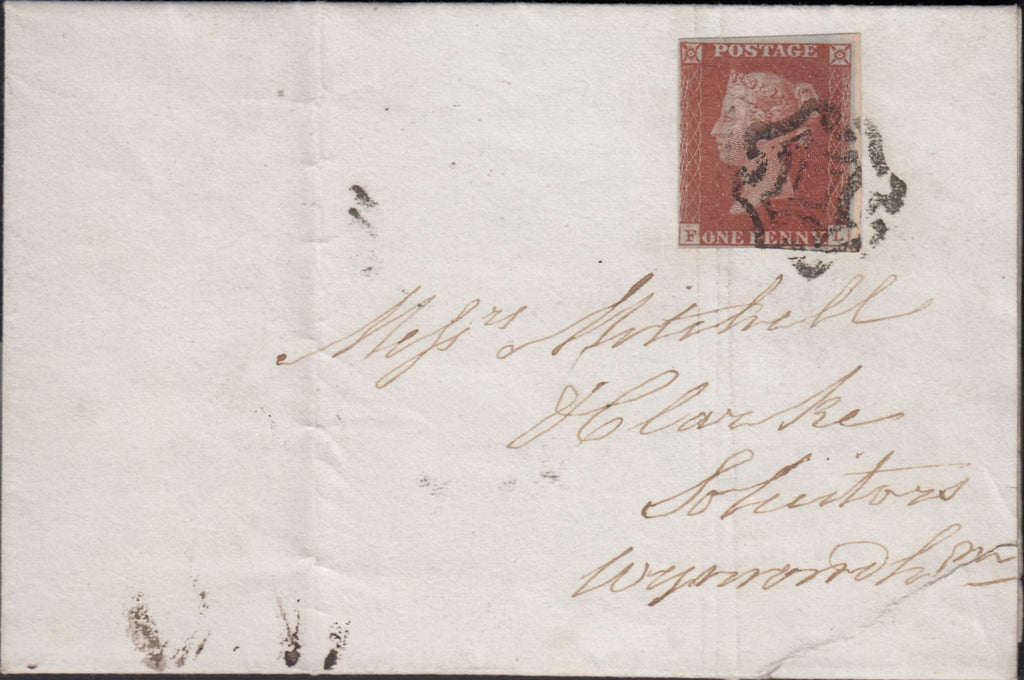 POSTAGE
F ONE PENNY L
Messrs Mitchell
& Clarke
Solicitors
Wymondhm